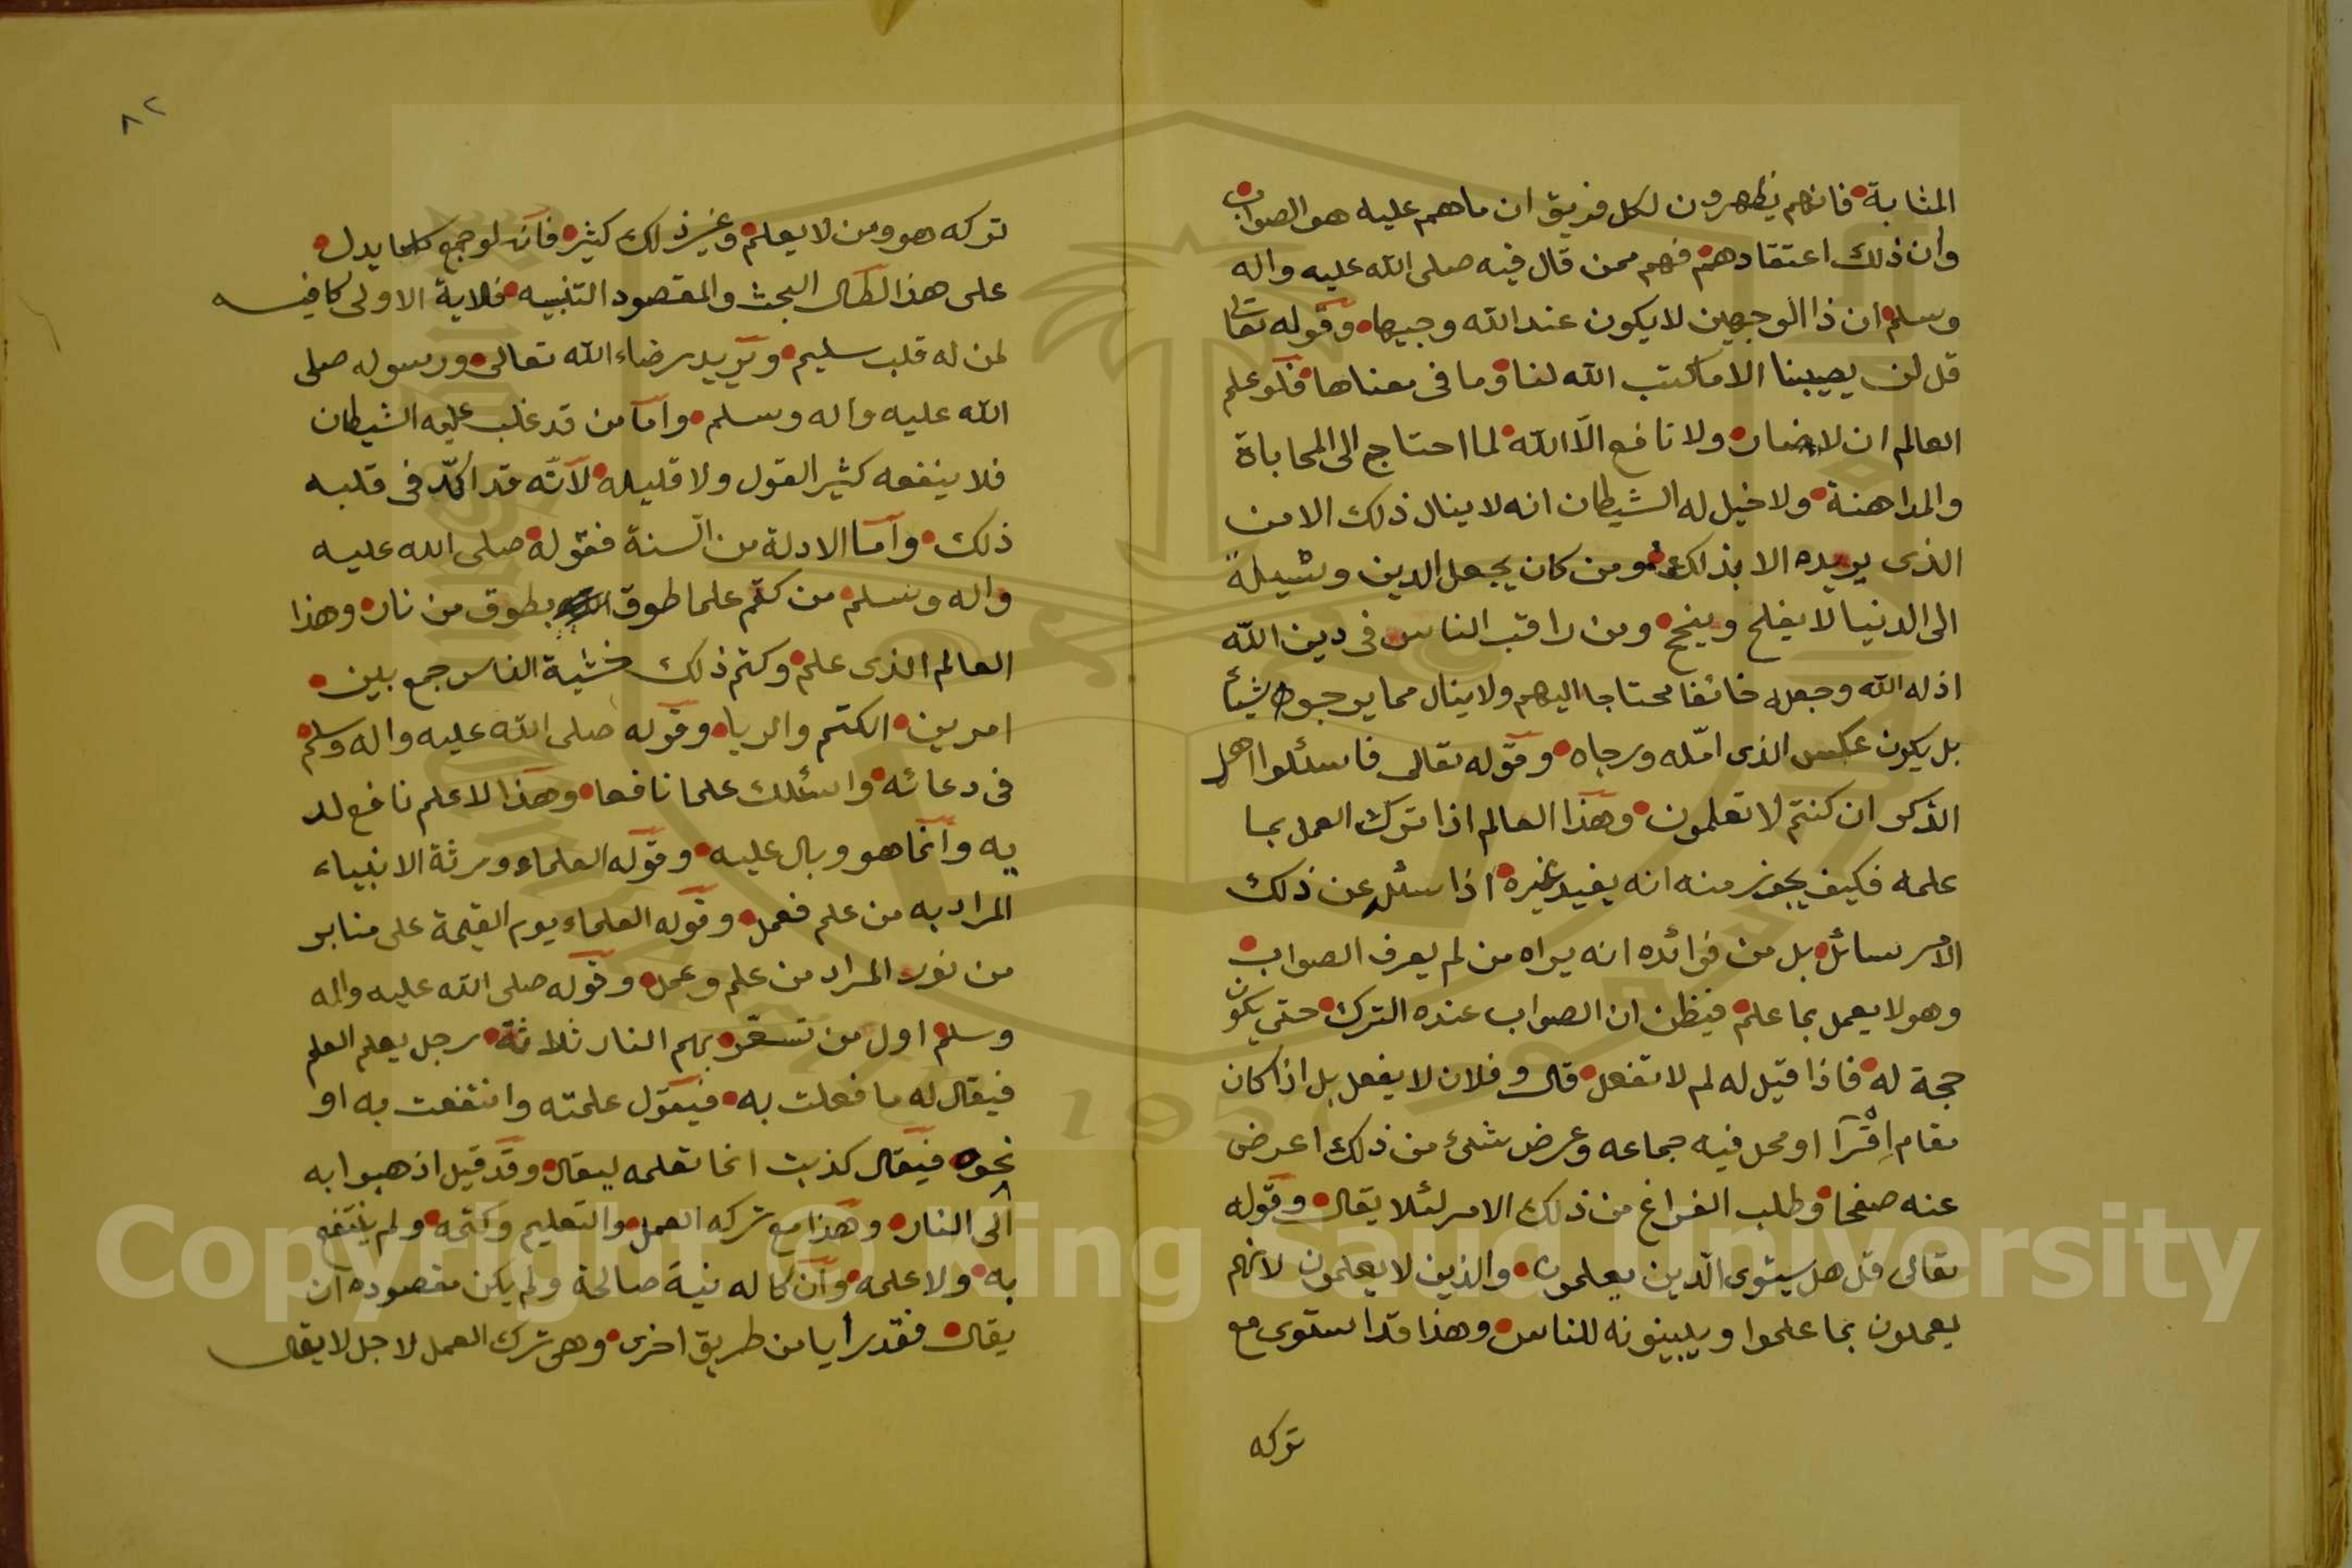 المثابة فانهم يظهرون لكل فريق ان ماهم عليه هو الصواب
وان ذلك اعتقادهم فهم ممن قال فيه صلى الله عليه واله
وسلم ان ذا الوجهين لا يكون عند الله وجيها وقوله تعالى
قل لن يصيبنا الا ما كتب الله لنا وما فى معناها فلو علم
العالم ان لا ضار ولا نافع الا الله لما احتاج الى المحاباة
والمداهنة ولا خيل له الشيطان انه لا ينال ذلك الا من
الذى يريده الا بذلك ومن كان يجعل الدين وسيلة
الى الدنيا لا يفلح وينجح ومن راقب الناس فى دين الله
اذله الله وجعله خائفا محتاجا اليهم ولا ينال مما يرجوه شيئا
بل يكون عكس الذى امّله ورجاه وقوله تعالى فاسئلوا اهل
الذكر ان كنتم لا تعلمون وهذا العالم اذا ترك العمل بما
علمه فكيف يجوز منه انه يفيد غيره اذا سئل عن ذلك
الامر سائل بل من فوائده انه يراه من لم يعرف الصواب
وهو لا يعمل بما علم فيظن ان الصواب عنده الترك حتى يكون
حجة له فاذا قيل له لم لا تفعل قال وفلان لا يفعل بل اذا كان
مقام اقرآ او محل فيه جماعه وعرض شئ من ذلك اعرض
عنه صفحا وطلب الفراغ من ذلك الامر لئلا يقال وقوله
تعالى قل هل يستوى الذين يعلمون والذين لا يعلمون لانهم
يعملون بما علموا ويبينونه للناس وهذا قد استوى مع
تركه
٨٢
تركه هو ومن لا يعلم وغير ذلك كثير فانه لو جمع كلما يدل
على هذا لطال البحث والمقصود التنبيه فالاية الاولى كافيه
لمن له قلب سليم ويريد رضاء الله تعالى ورسوله صلى
الله عليه واله وسلم واما من قد غلب عليه الشيطان
فلا ينفعه كثير القول ولا قليله لانه قد اكّد فى قلبه
ذلك واما الادلة من السنة فقوله صلى الله عليه
واله وسلم من كتم علما طوق بطوق من نار وهذا
العالم الذى علم وكتم ذلك خشية الناس جمع بين
امرين الكتم والريا وقوله صلى الله عليه واله وسلم
فى دعائه واسئلك علما نافعا وهذا لا علم نافع لد
يه وانما هو وبال عليه وقوله العلماء ورثة الانبياء
المراد به من علم فعمل وقوله العلماء يوم القيمة على منابر
من نور المراد من علم وعمل وقوله صلى الله عليه واله
وسلم اول من تسعر بهم النار ثلاثة رجل يعلم العلم
فيقال له ما فعلت به فيقول علمته وانتفعت به او
نحوه فيقال كذبت انما تعلمه ليقال وقد قيل اذهبوا به
الى النار وهذا مع تركه العمل والتعليم وكتمه ولم ينتفع
به ولا علمه وان كا له نية صالحة ولم يكن مقصوده ان
يقال فقد رأيا من طريق اخرى وهى ترك العمل لاجل لا يقال
Copyright © King Saud University